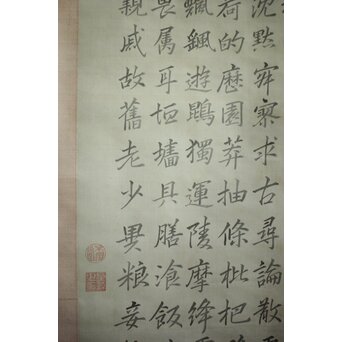 沈默寂寥求古尋論散
荷的歷園莽抽條枇杷
飄颻遊鵾獨運陵摩絳
畏屬耳垣墻具膳湌飯
親戚故舊老少異粮妾